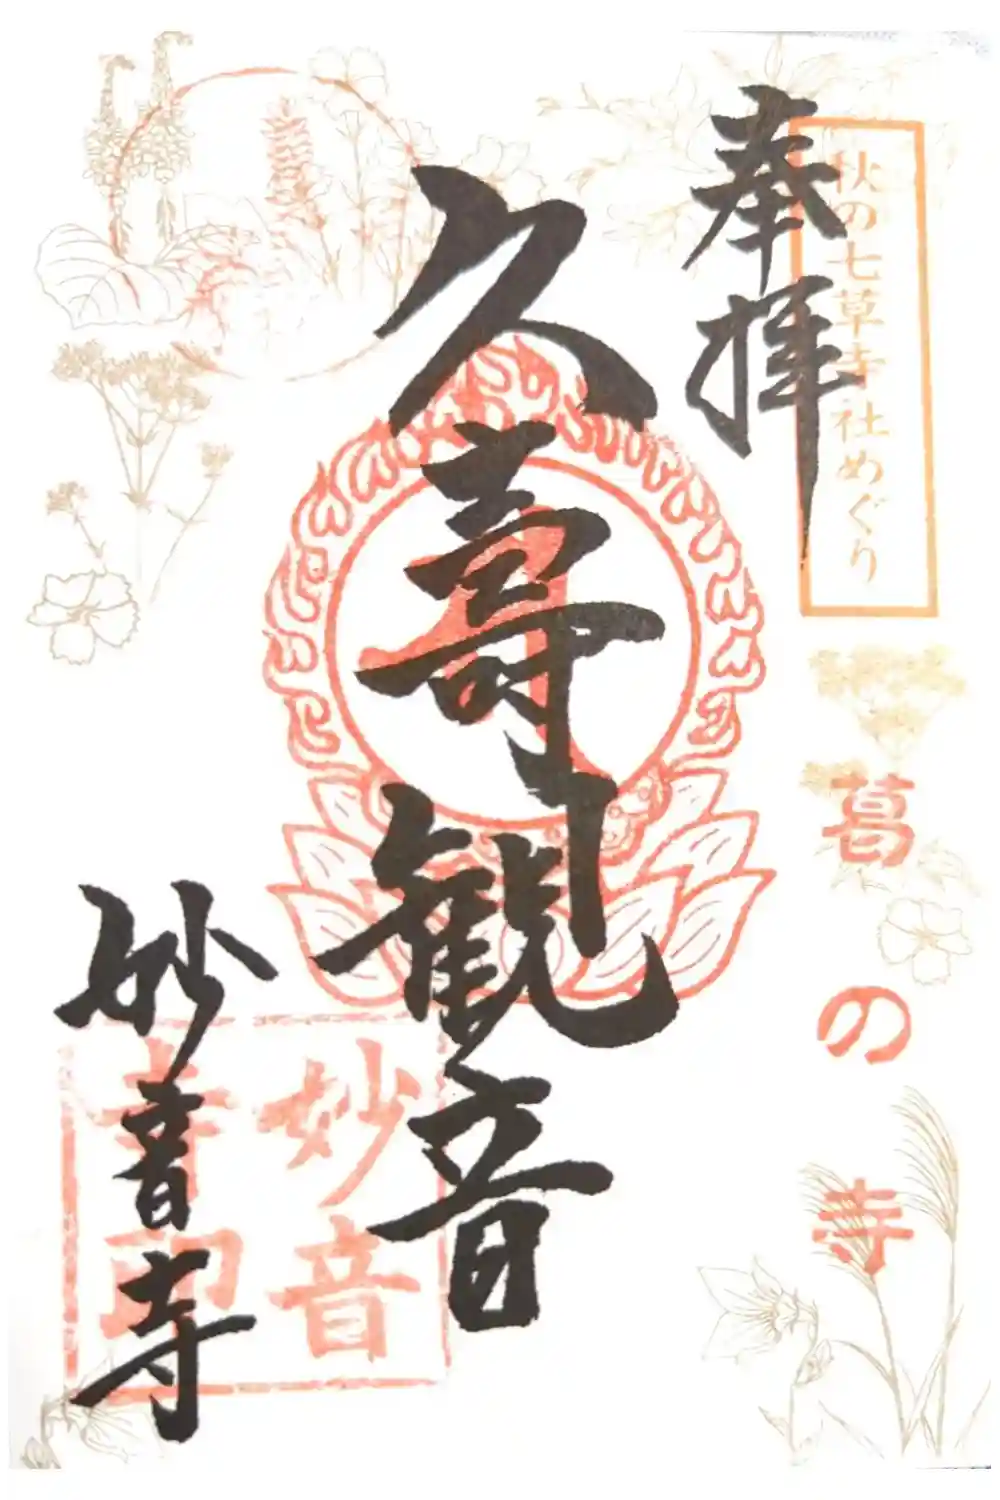 秋の七草寺社めぐり
奉拝
葛の寺
久壽観音
妙音寺
妙音寺印